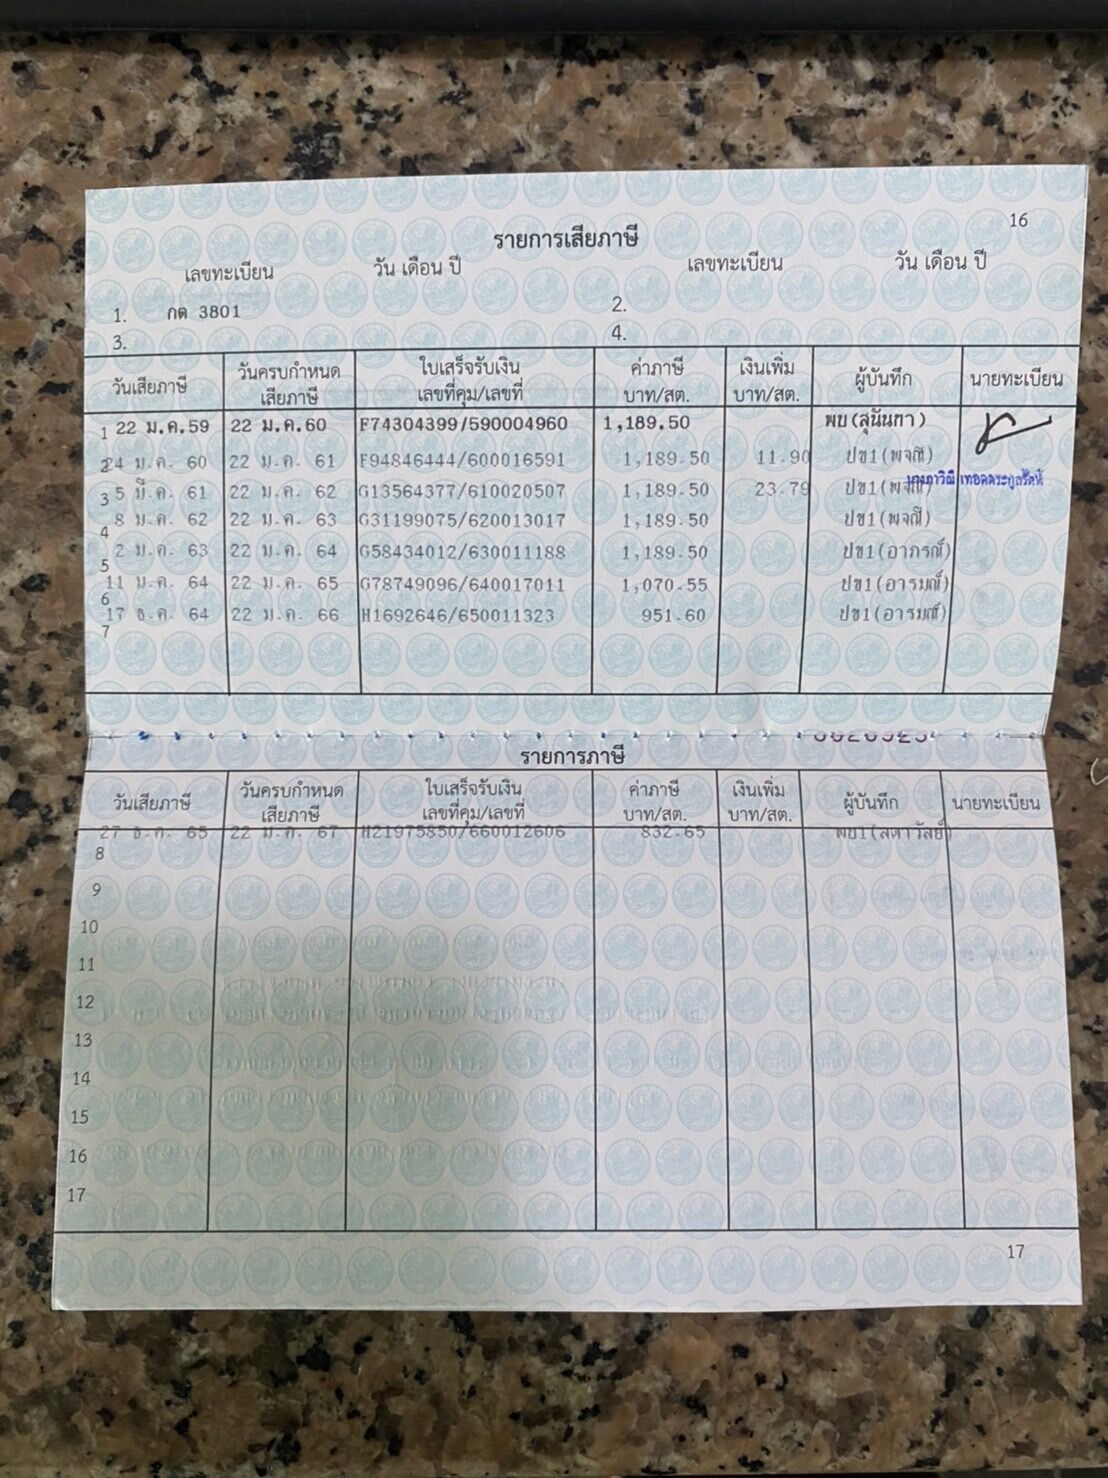 16
รายการเสียภาษี
เลขทะเบียน วัน เดือน ปี เลขทะเบียน วัน เดือน ปี
1. กต 3801 2.
3. 4.
วันเสียภาษี วันครบกำหนดเสียภาษี ใบเสร็จรับเงิน เลขที่คุม/เลขที่ ค่าภาษี บาท/สต. เงินเพิ่ม บาท/สต. ผู้บันทึก นายทะเบียน
1 22 ม.ค.59 22 ม.ค.60 F74304399/590004960 1,189.50 พบ(สุนันทา)
2 24 ม.ค. 60 22 ม.ค. 61 F94846444/600016591 1,189.50 11.90 ปข1(พจณี)
3 5 มี.ค. 61 22 ม.ค. 62 G13564377/610020507 1,189.50 23.79 ปข1(พจณี)
4 8 ม.ค. 62 22 ม.ค. 63 G31199075/620013017 1,189.50 ปข1(พจณี)
5 2 ม.ค. 63 22 ม.ค. 64 G58434012/630011188 1,189.50 ปข1(อาภรณ์)
6 11 ม.ค. 64 22 ม.ค. 65 G78749096/640017011 1,070.55 ปข1(อารมณ์)
7 17 ธ.ค. 64 22 ม.ค. 66 H1692646/650011323 951.60 ปข1(อารมณ์)
รายการภาษี
วันเสียภาษี วันครบกำหนดเสียภาษี ใบเสร็จรับเงิน เลขที่คุม/เลขที่ ค่าภาษี บาท/สต. เงินเพิ่ม บาท/สต. ผู้บันทึก นายทะเบียน
27 ธ.ค. 65 22 ม.ค. 67 H21975850/660012606 832.65 พบ1(ลดาวัลย์)
8
9
10
11
12
13
14
15
16
17
17